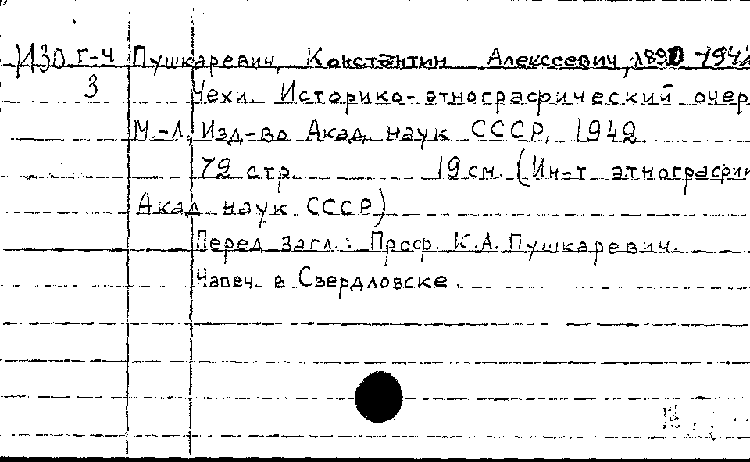 И30 Г-4 Пушкаревич, Константин Алексеевич, 1890-194
3 Чехи. Историко-этнографический очер
М.-Л., Изд-во Акад. наук СССР, 1942
79 стр. 19 см. (Ин-т этнографии
Акад. наук СССР)
Перед загл.: Проф. К.А. Пушкаревич.
Напеч. в Свердловске.